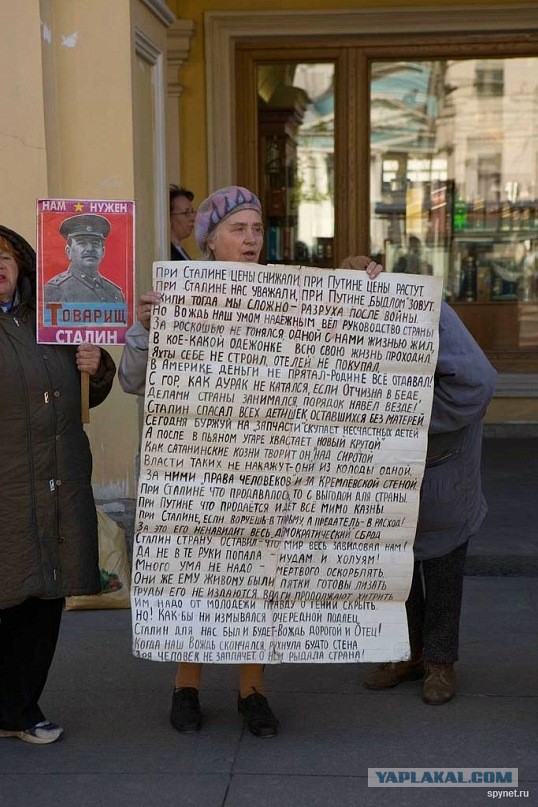 НАМ НУЖЕН
ТОВАРИЩ
СТАЛИН
ПРИ СТАЛИНЕ ЦЕНЫ СНИЖАЛИ, ПРИ ПУТИНЕ ЦЕНЫ РАСТУТ
ПРИ СТАЛИНЕ НАС УВАЖАЛИ, ПРИ ПУТИНЕ БЫДЛОМ ЗОВУТ.
ЖИЛИ ТОГДА МЫ СЛОЖНО-РАЗРУХА ПОСЛЕ ВОЙНЫ.
НО ВОЖДЬ НАШ УМОМ НАДЕЖНЫМ ВЁЛ РУКОВОДСТВО СТРАНЫ
ЗА РОСКОШЬЮ НЕ ГОНЯЛСЯ, ОДНОЙ С НАМИ ЖИЗНЬЮ ЖИЛ,
В КОЕ-КАКОЙ ОДЕЖОНКЕ ВСЮ СВОЮ ЖИЗНЬ ПРОХОДИЛ.
ЯХТЫ СЕБЕ НЕ СТРОИЛ, ОТЕЛЕЙ НЕ ПОКУПАЛ
В АМЕРИКЕ ДЕНЬГИ НЕ ПРЯТАЛ-РОДИНЕ ВСЁ ОТДАВАЛ!
С ГОР, КАК ДУРАК НЕ КАТАЛСЯ, ЕСЛИ ОТЧИЗНА В БЕДЕ,
ДЕЛАМИ СТРАНЫ ЗАНИМАЛСЯ, ПОРЯДОК НАВЁЛ ВЕЗДЕ!
СТАЛИН СПАСАЛ ВСЕХ ДЕТИШЕК, ОСТАВШИХСЯ БЕЗ МАТЕРЕЙ
СЕГОДНЯ БУРЖУЙ НА ЗАПЧАСТИ СКУПАЕТ НЕСЧАСТНЫХ ДЕТЕЙ
А ПОСЛЕ В ПЬЯНОМ УГАРЕ ХВАСТАЕТ НОВЫЙ КРУТОЙ
КАК САТАНИНСКИЕ КОЗНИ ТВОРИТ ОН НАД СИРОТОЙ
ВЛАСТИ ТАКИХ НЕ НАКАЖУТ-ОНИ ИЗ КОЛОДЫ ОДНОЙ,
ЗА НИМИ ПРАВА ЧЕЛОВЕКОВ И ЗА КРЕМЛЁВСКОЙ СТЕНОЙ.
ПРИ СТАЛИНЕ ЧТО ПРОДАВАЛОСЬ, ТО С ВЫГОДОЙ ДЛЯ СТРАНЫ,
ПРИ ПУТИНЕ ЧТО ПРОДАЁТСЯ ИДЁТ ВСЁ МИМО КАЗНЫ
ПРИ СТАЛИНЕ, ЕСЛИ ВОРУЕШЬ В ТЮРЬМУ, А ПРЕДАТЕЛЬ-В РАСХОД!
ЗА ЭТО ЕГО НЕНАВИДИТ ВЕСЬ ДЕМОКРАТИЧЕСКИЙ СБРОД
СТАЛИН СТРАНУ ОСТАВИЛ-ЧТО МИР ВЕСЬ ЗАВИДОВАЛ НАМ!
ДА НЕ В ТЕ РУКИ ПОПАЛА - ИУДАМ И ХОЛУЯМ!
МНОГО УМА НЕ НАДО - МЕРТВОГО ОСКОРБЛЯТЬ.
ОНИ ЖЕ ЕМУ ЖИВОМУ БЫЛИ ПЯТКИ ГОТОВЫ ЛИЗАТЬ.
ТРУДЫ ЕГО НЕ ИЗДАЮТСЯ, ВРАГИ ПРОДОЛЖАЮТ ХИТРИТЬ
ИМ, НАДО ОТ МОЛОДЕЖИ ПРАВДУ О ГЕНИИ СКРЫТЬ.
НО! КАК-БЫ НИ ИЗМЫВАЛСЯ ОЧЕРЕДНОЙ ПОДЛЕЦ,
СТАЛИН ДЛЯ НАС БЫЛ И БУДЕТ-ВОЖДЬ ДОРОГОЙ И ОТЕЦ!
КОГДА НАШ ВОЖДЬ СКОНЧАЛСЯ, РУХНУЛА БУДТО СТЕНА
ЗРЯ ЧЕЛОВЕК НЕ ЗАПЛАЧЕТ О НЁМ РЫДАЛА СТРАНА!
YAPLAKAL.COM
spynet.ru